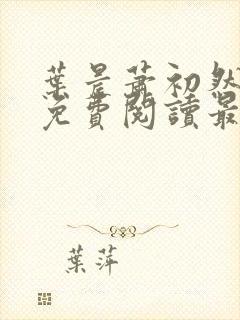 葉晨蕭初然
免費閱讀最
葉萍